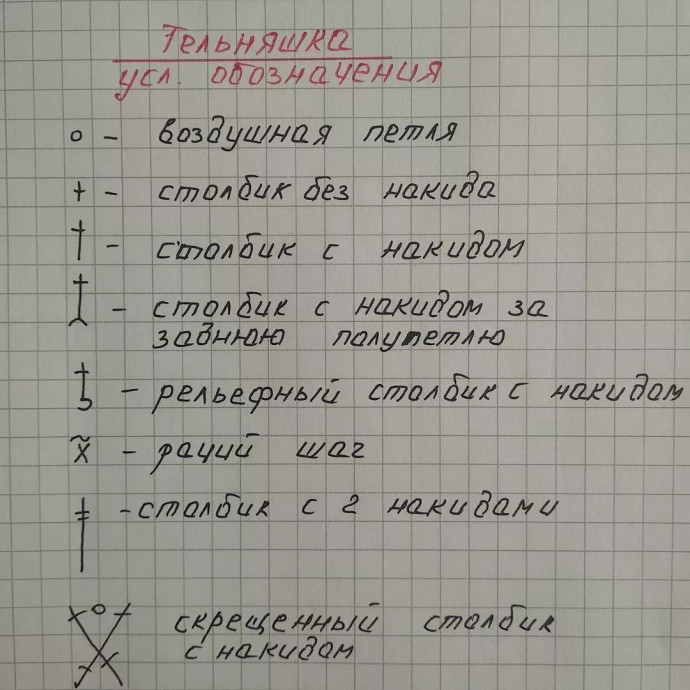 Тельняшка
усл. обозначения
о - воздушная петля
+ - столбик без накида
† - столбик с накидом
- столбик с накидом за
заднюю полупетлю
- рельефный столбик с накидом
x̃ - рачий шаг
‡ - столбик с 2 накидами
скрещенный столбик
с накидом